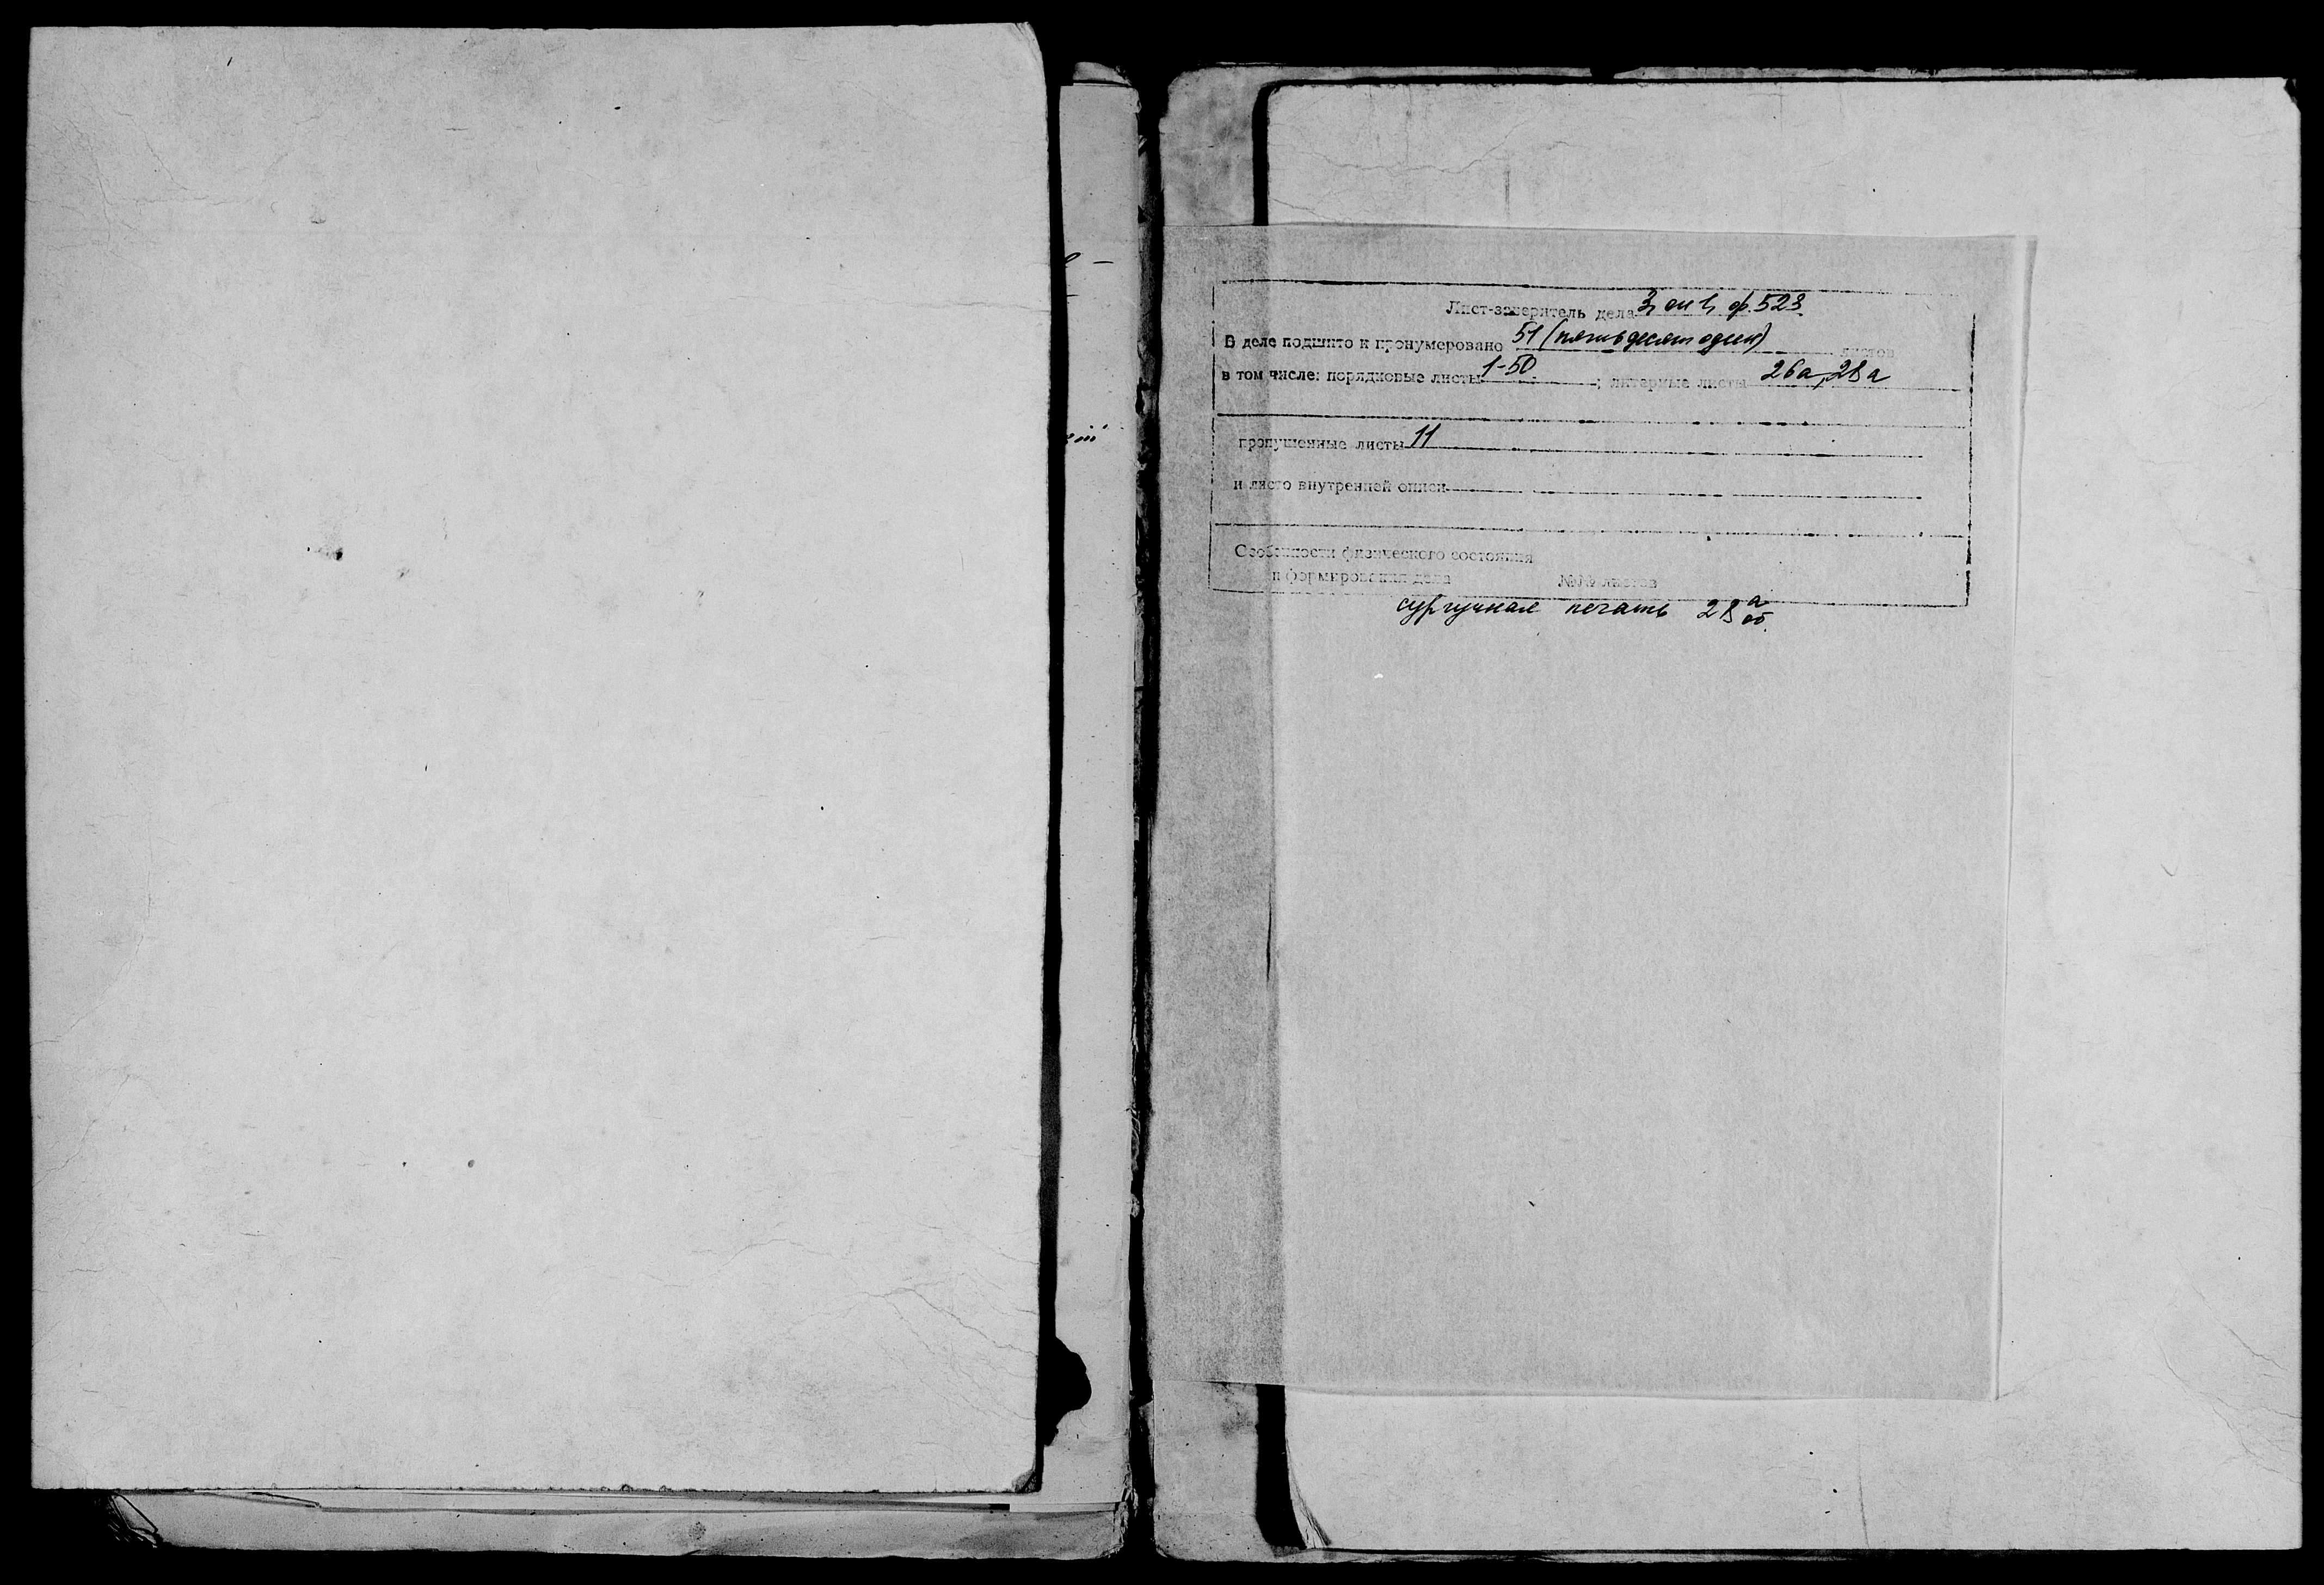 Лист-заверитель дела 3, оп 1, ф. 523
В деле подшито и пронумеровано 51 (пятьдесят один) листов
в том числе: порядковые листы 1-50; литерные листы 26а, 28а
пропущенные листы 11
и листо внутренней описи
Особенности физического состояния
и формирования дела №№ листов
сургучная печать 28 а об.